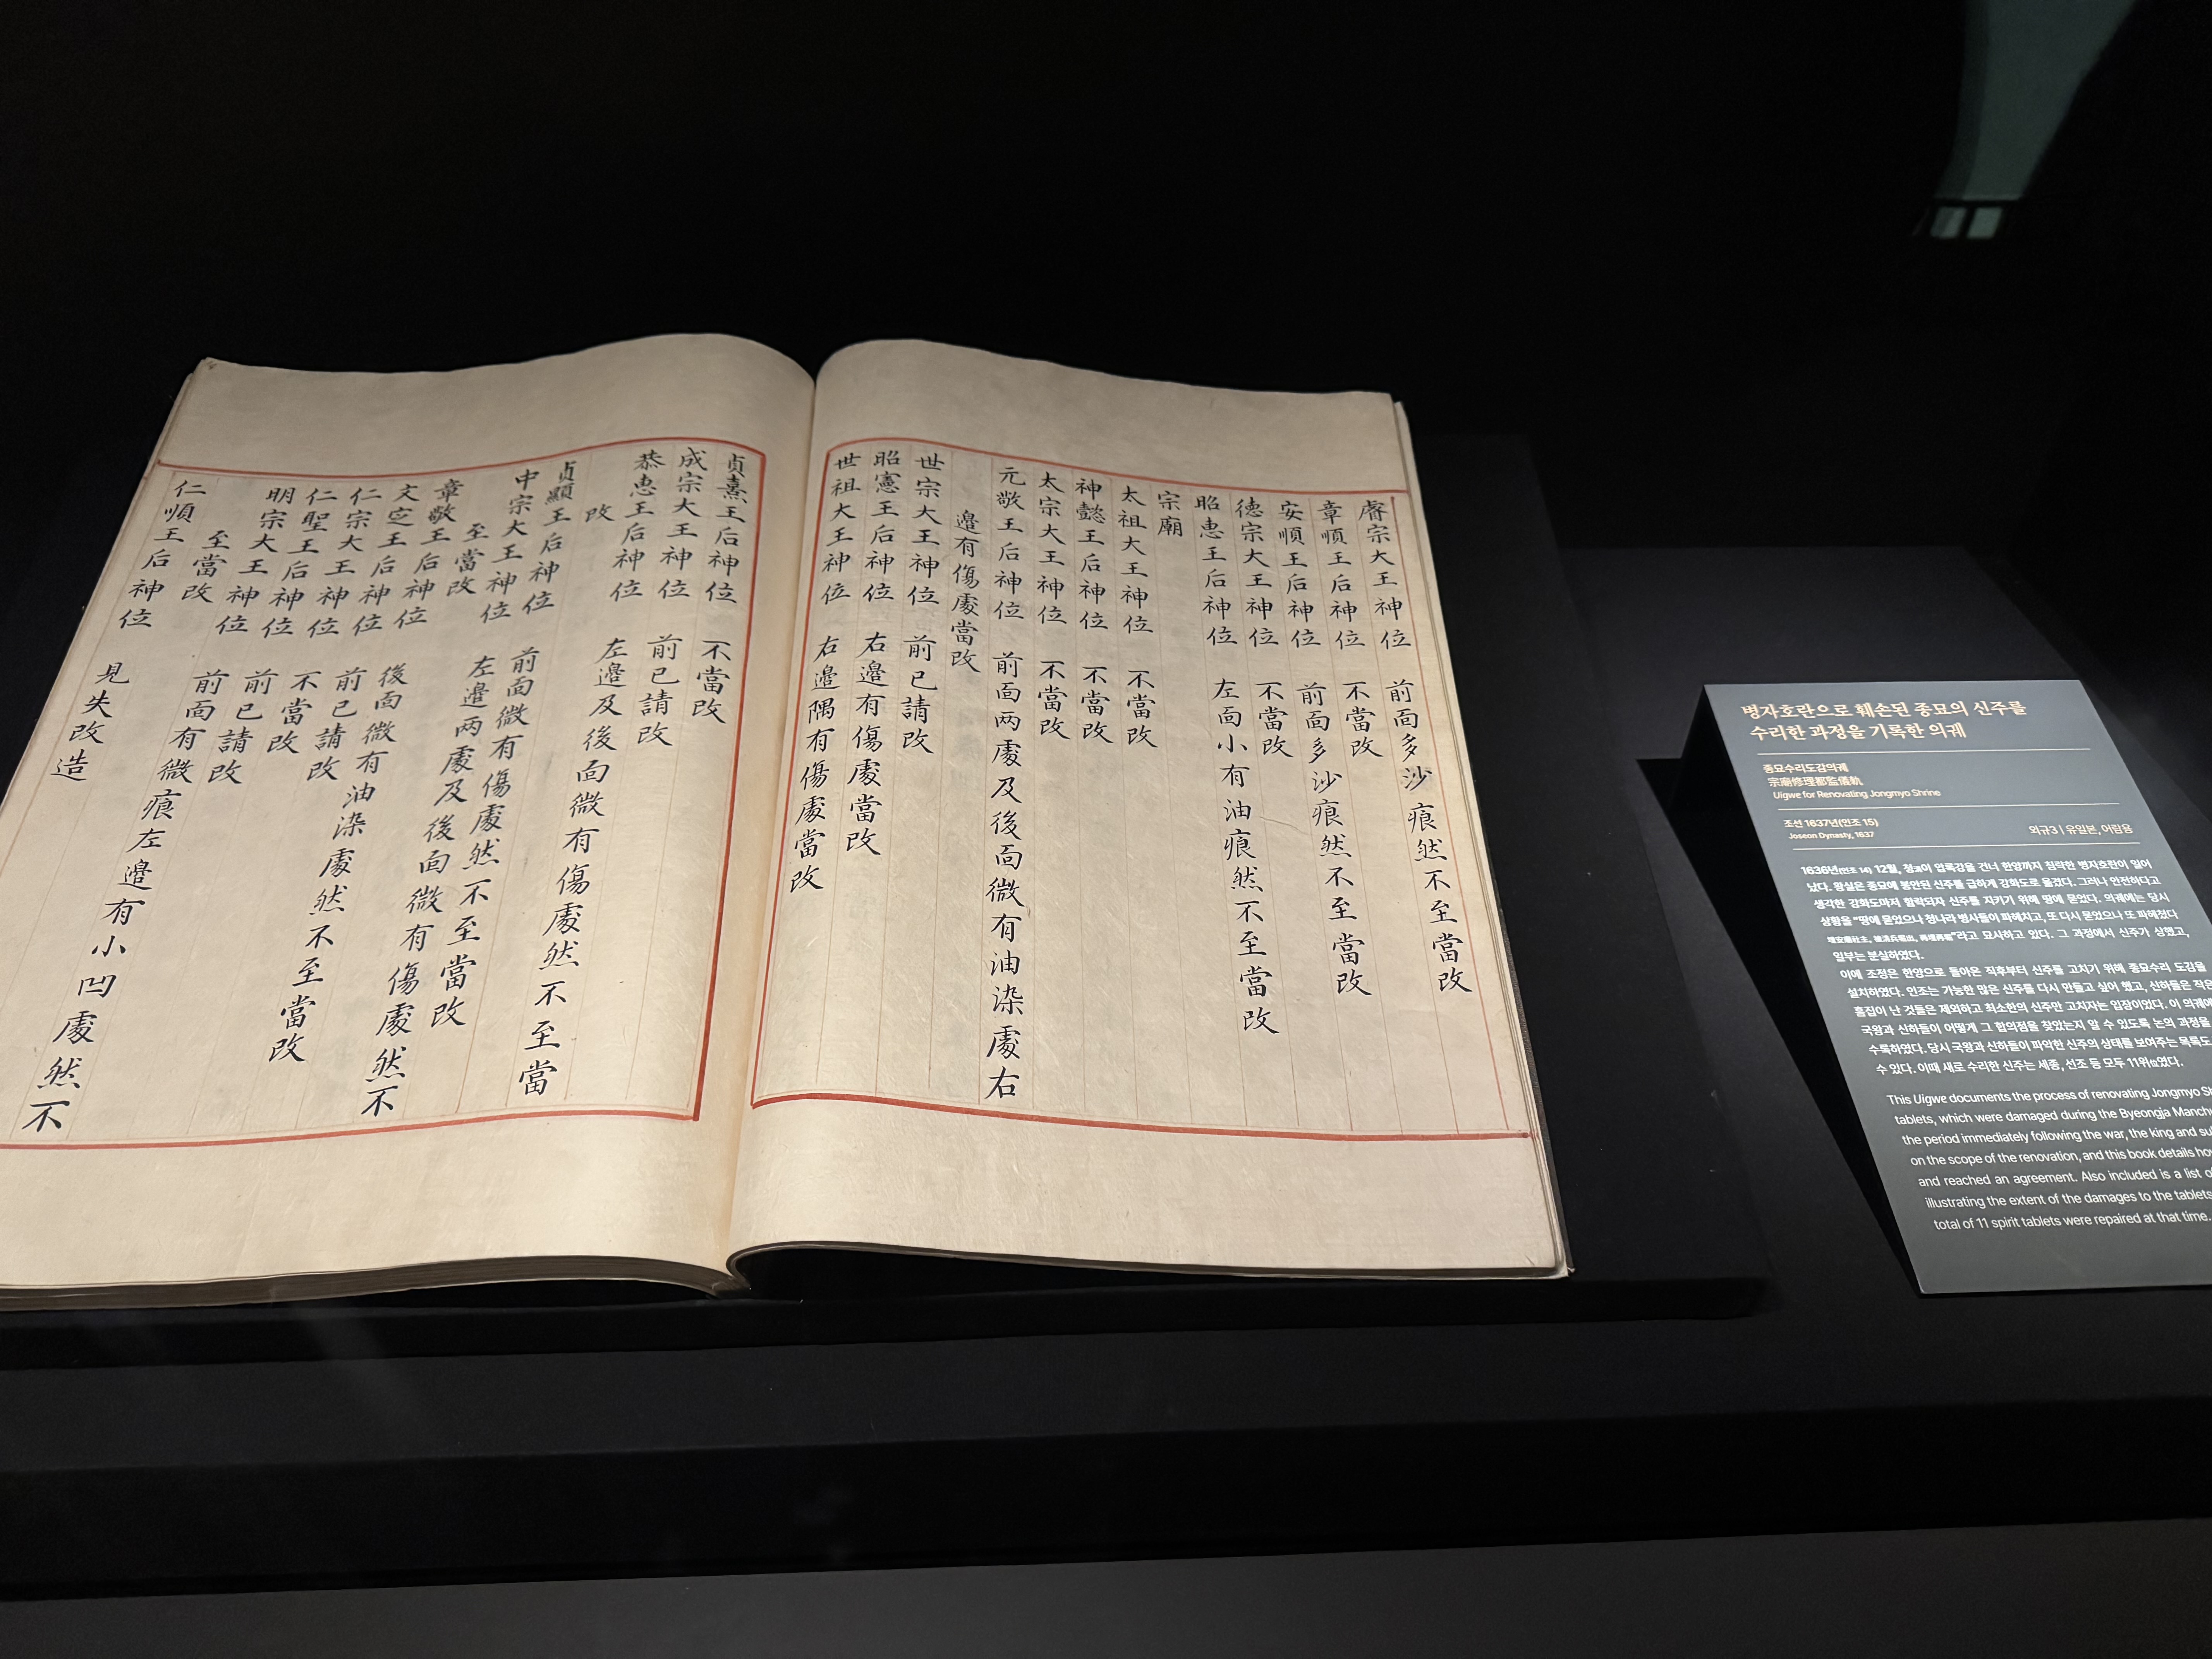 睿宗大王神位 前面多沙痕然不至當改
章順王后神位 不當改
安順王后神位 前面多沙痕然不至當改
德宗大王神位 不當改
昭惠王后神位 左面小有油痕然不至當改
宗廟
太祖大王神位 不當改
神懿王后神位 不當改
太宗大王神位 不當改
元敬王后神位 前面两處及後面微有油染處右
邉有傷處當改
世宗大王神位 前已請改
昭憲王后神位 右邉有傷處當改
世祖大王神位 右邉隅有傷處當改
貞熹王后神位 不當改
成宗大王神位 前已請改
恭惠王后神位 左邉及後面微有傷處然不至當
改
貞顯王后神位 前面微有傷處然不至當改
中宗大王神位 左邉两處及後面微有傷處然不
至當改
章敬王后神位 後面微有油染處然不至當改
文㝎王后神位 前已請改
仁宗大王神位 不當改
仁聖王后神位 前已請改
明宗大王神位 前面有微痕左邉有小凹處然不
至當改
仁順王后神位 見失改造
병자호란으로 훼손된 종묘의 신주를
수리한 과정을 기록한 의궤
종묘수리도감의궤
宗廟修理都監儀軌
Uigwe for Renovating Jongmyo Shrine
조선 1637년(인조 15)
Joseon Dynasty, 1637
외규3 | 유일본, 어람용
1636년(인조 14) 12월, 청淸이 압록강을 건너 한양까지 침략한 병자호란이 일어
났다. 왕실은 종묘에 봉안된 신주를 급하게 강화도로 옮겼다. 그러나 안전하다고
생각한 강화도마저 함락되자 신주를 지키기 위해 땅에 묻었다. 의궤에는 당시
상황을 “땅에 묻었으나 청나라 병사들이 파헤치고, 또 다시 묻었으나 또 파헤쳤다
”라고 묘사하고 있다. 그 과정에서 신주가 상했고,
일부는 분실하였다.
이에 조정은 한양으로 돌아온 직후부터 신주를 고치기 위해 종묘수리 도감을
설치하였다. 인조는 가능한 많은 신주를 다시 만들고 싶어 했고, 신하들은 작은
흠집이 난 것들은 제외하고 최소한의 신주만 고치자는 입장이었다. 이 의궤에
국왕과 신하들이 어떻게 그 합의점을 찾았는지 알 수 있도록 논의 과정을
수록하였다. 당시 국왕과 신하들이 파악한 신주의 상태를 보여주는 목록도
수 있다. 이때 새로 수리한 신주는 세종, 선조 등 모두 11위位였다.
This Uigwe documents the process of renovating Jongmyo Sh
tablets, which were damaged during the Byeongja Manch
the period immediately following the war, the king and su
on the scope of the renovation, and this book details ho
and reached an agreement. Also included is a list o
illustrating the extent of the damages to the tablets
total of 11 spirit tablets were repaired at that time.